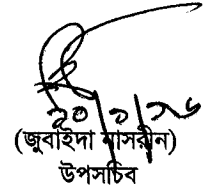 ২০/১/২৬
(জুবাইদা নাসরীন)
উপসচিব